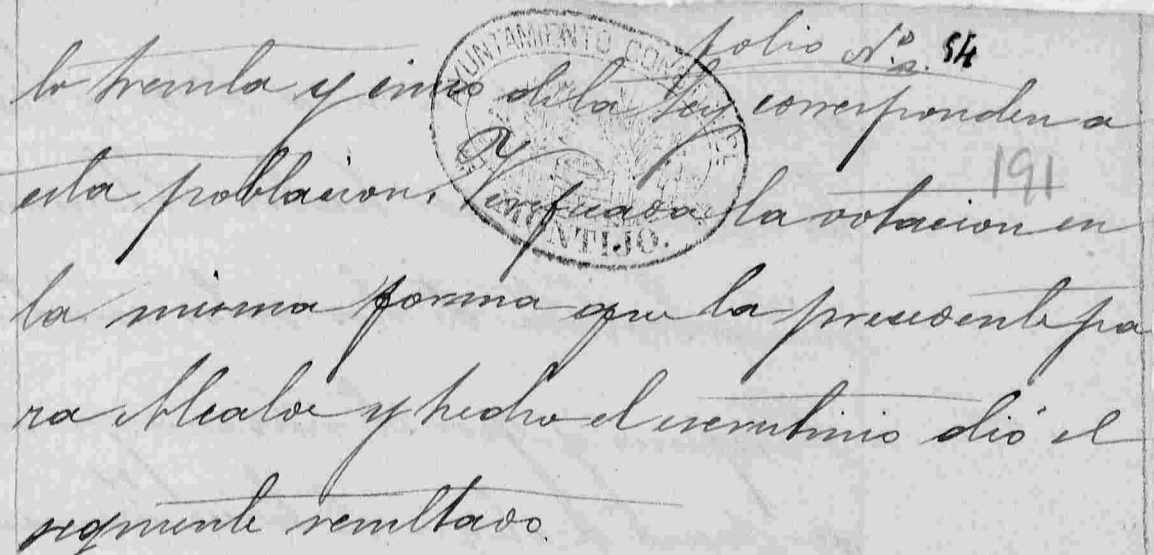 folio Nº 54
AYUNTAMIENTO CONSTITUCIONAL
MONTIJO.
lo treinta y cinco de la ley corresponden a
191
esta poblacion. Verificada la votacion en
la misma forma que la precedente pa
ra Alcalde y hecho el escrutinio dió el
siguiente resultado.